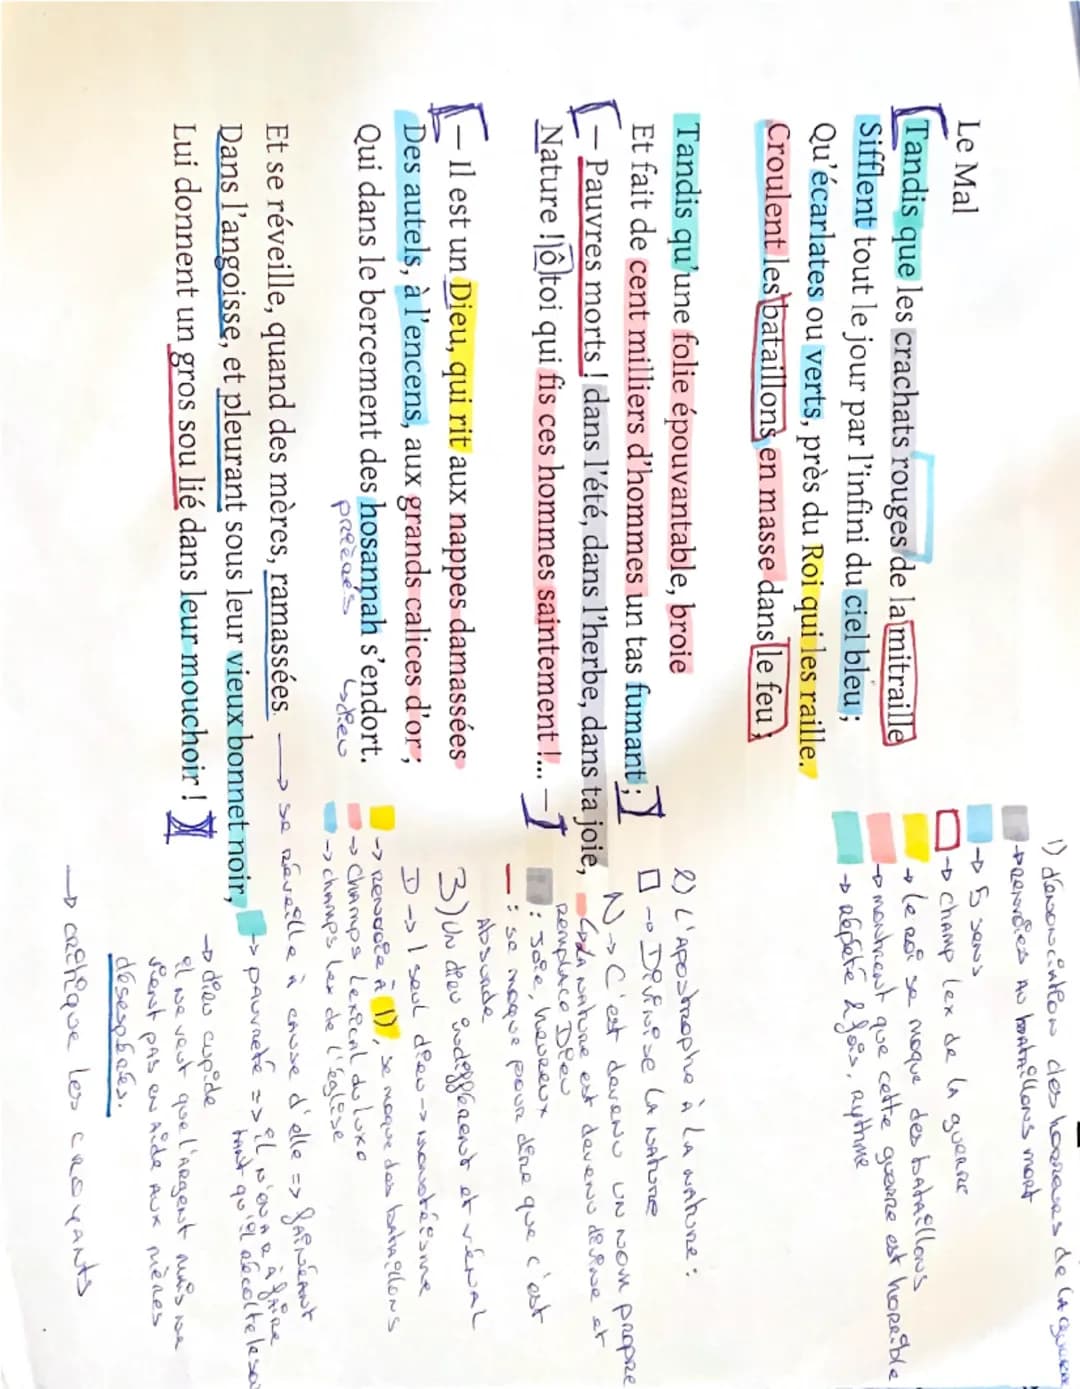 Le Mal
Tandis que les crachats rouges de la mitraille
Sifflent tout le jour par l'infini du ciel bleu ;
Qu'écarlates ou verts, près du Roi qui les raille,
Croulent les bataillons en masse dans le feu ;
Tandis qu'une folie épouvantable, broie
Et fait de cent milliers d'hommes un tas fumant ;
– Pauvres morts ! dans l'été, dans l'herbe, dans ta joie,
Nature ! ô toi qui fis ces hommes saintement !... –
– Il est un Dieu, qui rit aux nappes damassées
Des autels, à l'encens, aux grands calices d'or ;
Qui dans le bercement des hosannah s'endort.
prières
↳ dieu
Et se réveille, quand des mères, ramassées
Dans l'angoisse, et pleurant sous leur vieux bonnet noir,
Lui donnent un gros sou lié dans leur mouchoir !
1) dénonciation des horreurs de la guerre
→ au bataillons mort
→ 5 sens
→ champ lex de la guerre
→ le roi se moque des bataillons
→ montrent que cette guerre est horrible
→ répété 2 fois, rythme
2) L'apostrophe à la nature :
→ Divinise la nature
N → C'est devenu un nom propre
La nature est devenu divine et
remplace Dieu
: Joie, heureux
: se moque pour dire que c'est
Absurde
3) Un dieu indifférent et vénal
D → 1 seul dieu → monotéisme
→ renvoie à 1), se moque des bataillons
→ Champs lexical du luxe
→ champs lex de l'église
→ se réveille à cause d'elle => fainéant
→ pauvreté => il n'en a à faire
tant qu'il récolte les sou
→ dieu cupide
il ne veut que l'argent mais ne
vient pas en aide aux mères
désespérées.
→ critique les croyants